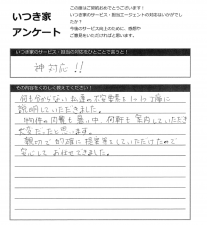 いつき家
アンケート
この度はご契約おめでとうございます！
いつき家のサービス・担当エージェントの対応はいかがでしたか？
今後のサービス向上のために、感想やご意見をいただければと思います。
いつき家のサービス・担当の対応をひとことで言うと！
神対応!!
その内容をくわしく教えてください！
何も分からない私達の不安要素を1つ1つ丁寧に
説明していただきました。
物件の内覧も暑い中、何軒も案内していただき
大変だったと思います。
親切で的確に提案をしていただけたので
安心しておまかせできました。